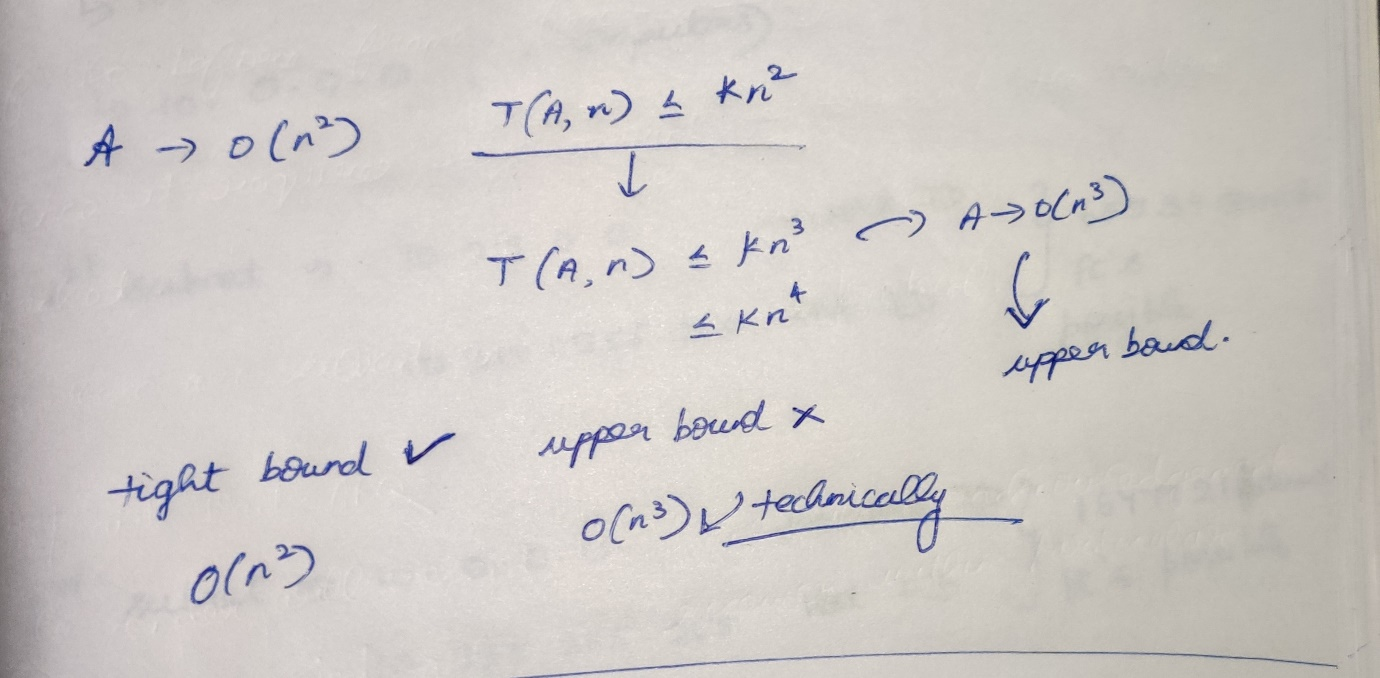 A → O(n²) T(A, n) ≤ kn²
↓
T(A, n) ≤ kn³ → A → O(n³)
≤ kn⁴
upper bound.
tight bound ✓ upper bound ×
O(n³) ✓ technically
O(n²)